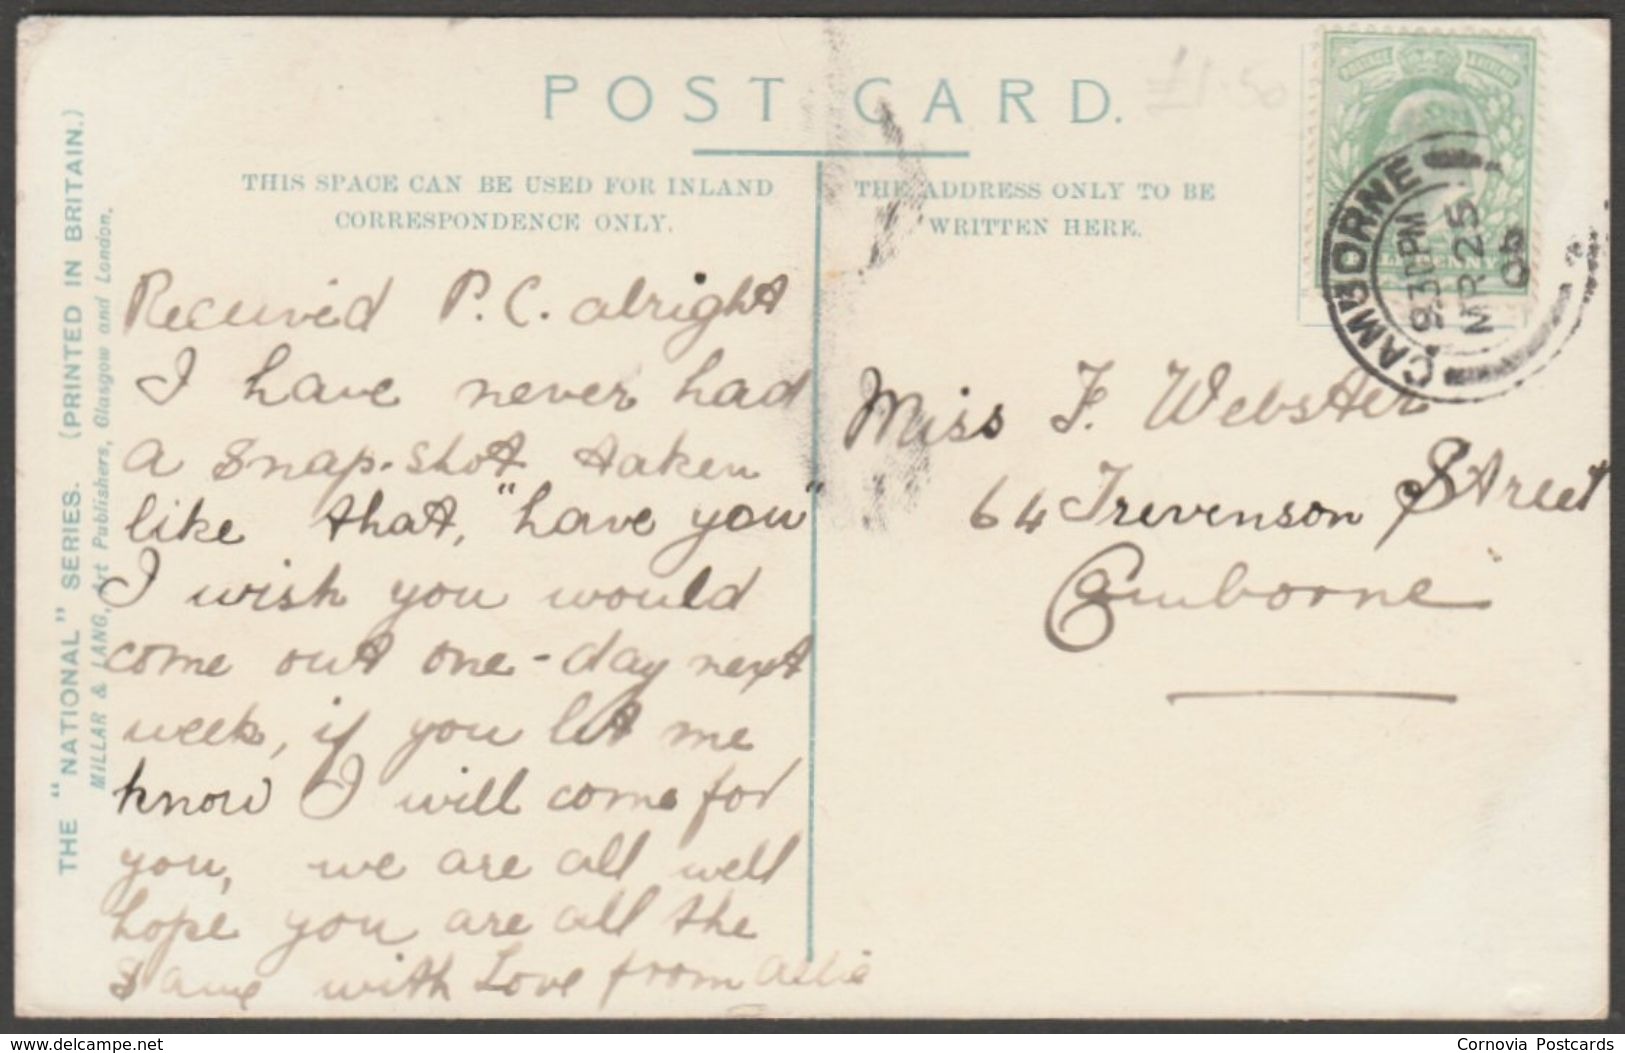 POST CARD.
£1.50
THIS SPACE CAN BE USED FOR INLAND
CORRESPONDENCE ONLY.
THE ADDRESS ONLY TO BE
WRITTEN HERE.
THE "NATIONAL" SERIES. (PRINTED IN BRITAIN.)
MILLAR & LANG, Art Publishers, Glasgow and London.
CAMBORNE
9.30PM
MR 25
Received P.C. alright
I have never had
a snap-shot taken
like that, "have you"
I wish you would
come out one-day next
week, if you let me
know I will come for
you, we are all well
hope you are all the
same with Love from
Miss F. Webster
64 Trevenson Street
Camborne
www.delcampe.net
Cornovia Postcards